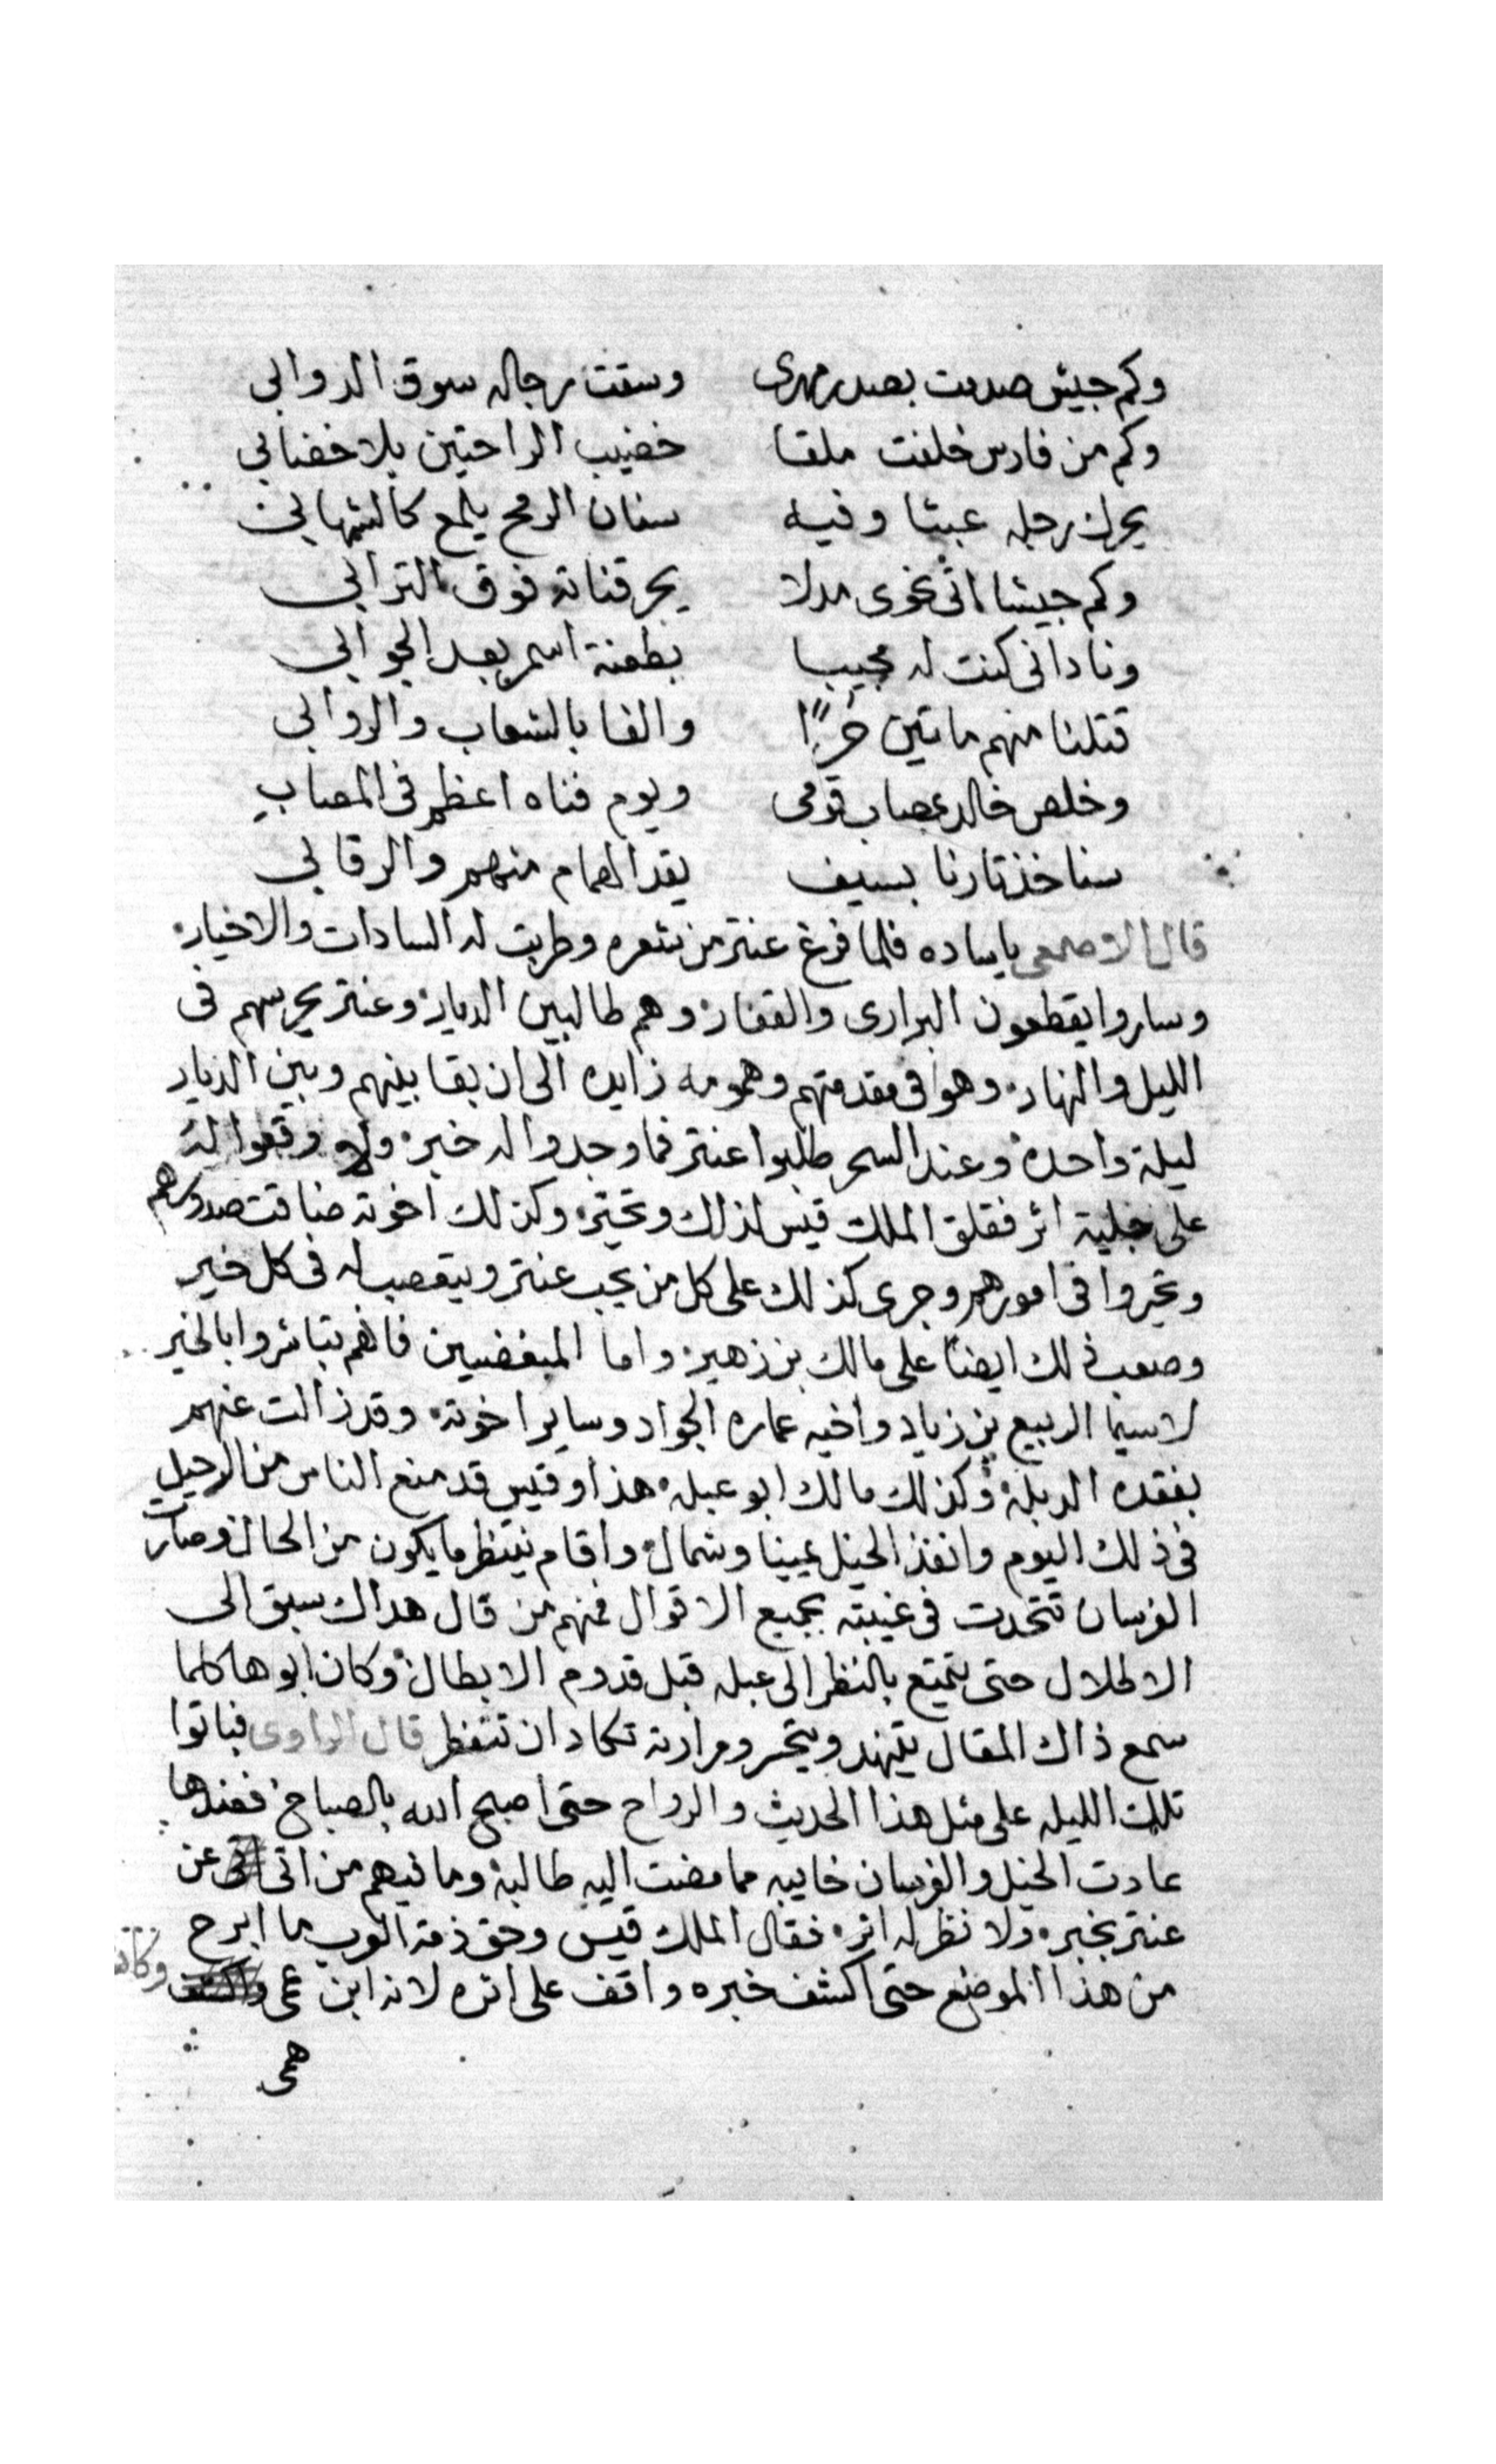 وكم جيش صدمت بصدر مهرى وسقت رجاله سوق الدوابى
وكم من فارس خلفت ملقا خضيب الراحتين بلا خضابى
يحرك رجله عبثا وفيه سنان الرمح يلمع كالشهابى
وكم جيشا اتى نحوى مدلا يجر قناته فوق الترابى
ونادانى كنت له مجيبا بطعنة اسمر بعد الجوابى
قتلنا منهم ماتين حرًا والفا بالشعاب والروابى
وخلص خالد عصاب قومى ويوم فناه اعظم فى المصاب
سناخذ تارنا بسيف يقد الهمام منهم والرقابى
قال الاصمعى ياساده فلما فرغ عنتر من شعره وطربت له السادات والاخيار
وساروا يقطعون البرارى والقفار وهم طالبين الديار وعنتر يحرسهم فى
الليل والنهار وهو فى مقدمتهم وهمومه زايده الى ان بقا بينهم وبين الديار
ليلة واحدة وعند السحر طلبوا عنتر فما وجدوا له خبر ولا وقعوا له
على جلية اثر فقلق الملك قيس لذلك وتحير وكذلك اخوته ضاقت صدورهم
وتحيروا فى امورهم وجرى كذلك على كل من يحب عنتر ويتعصب له فى كل خير
وصعب ذلك ايضا على مالك بن زهير واما المبغضيين فانهم تباشروا بالخير
لاسيما الربيع بن زياد واخيه عماره الجواد وساير اخوته وقد زالت عنهم
بفقده الدبلة وكذلك مالك ابو عبله هذا وقيس قد منع الناس من الرحيل
فى ذلك اليوم وانفذ الخيل يمينا وشمال واقام ينتظر ما يكون من الحال وصار
الفرسان تتحدت فى غيبته بجميع الاقوال فمنهم من قال هداك سبق الى
الاطلال حتى يتمتع بالنظر الى عبله قبل قدوم الابطال وكان ابوها كلما
سمع ذاك المقال يتنهد ويتحسر ومرارته تكاد ان تتفطر قال الراوى فباتوا
تلك الليله على مثل هذا الحديث والرواح حتى اصبح الله بالصباح فعندها
عادت الخيل والفرسان خايبه مما مضت اليه طالبة وما فيهم من اتى عن
عنتر بخبر ولا نظر له اثر فقال الملك قيس وحق ذمة العرب ما ابرح
من هذا الموضع حتى اكشف خبره واقف على اثره لانه ابن عمى وكاشف
همى